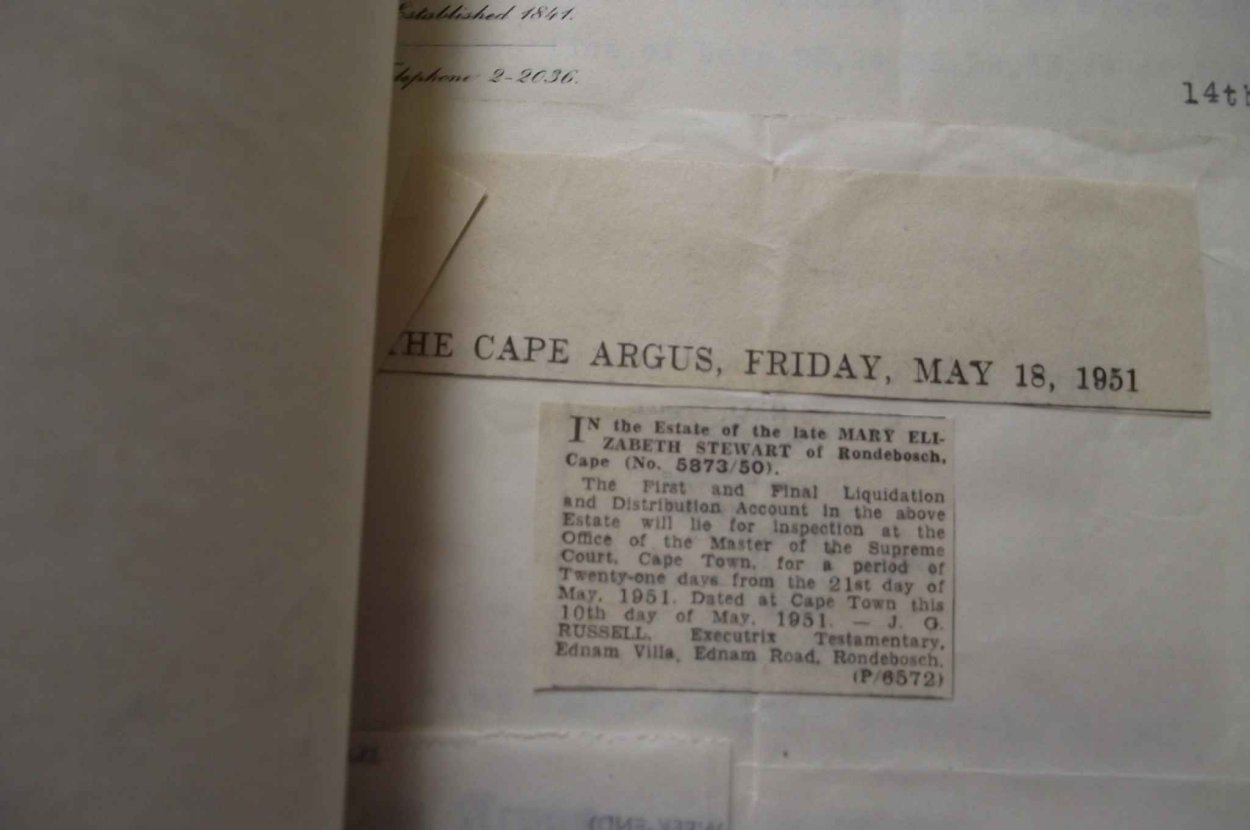 Established 1841.
Telephone 2-2036.
14th
THE CAPE ARGUS, FRIDAY, MAY 18, 1951
IN the Estate of the late MARY ELI-
ZABETH STEWART of Rondebosch,
Cape (No. 5873/50).
The First and Final Liquidation
and Distribution Account in the above
Estate will lie for inspection at the
Office of the Master of the Supreme
Court, Cape Town, for a period of
Twenty-one days from the 21st day of
May, 1951. Dated at Cape Town this
10th day of May, 1951. — J. G.
RUSSELL, Executrix Testamentary,
Ednam Villa, Ednam Road, Rondebosch.
(P/6572)